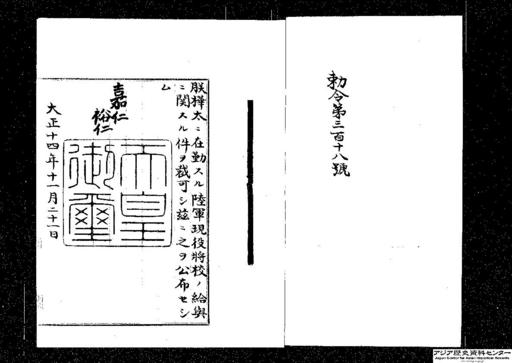 勅令第三百十八號
朕樺太ニ在勤スル陸軍現役將校ノ給與
ニ關スル件ヲ裁可シ茲ニ之ヲ公布セシ
ム
嘉仁
裕仁
天皇
御璽
大正十四年十一月二十一日
アジア歴史資料センター
Japan Center for Asian Historical Records